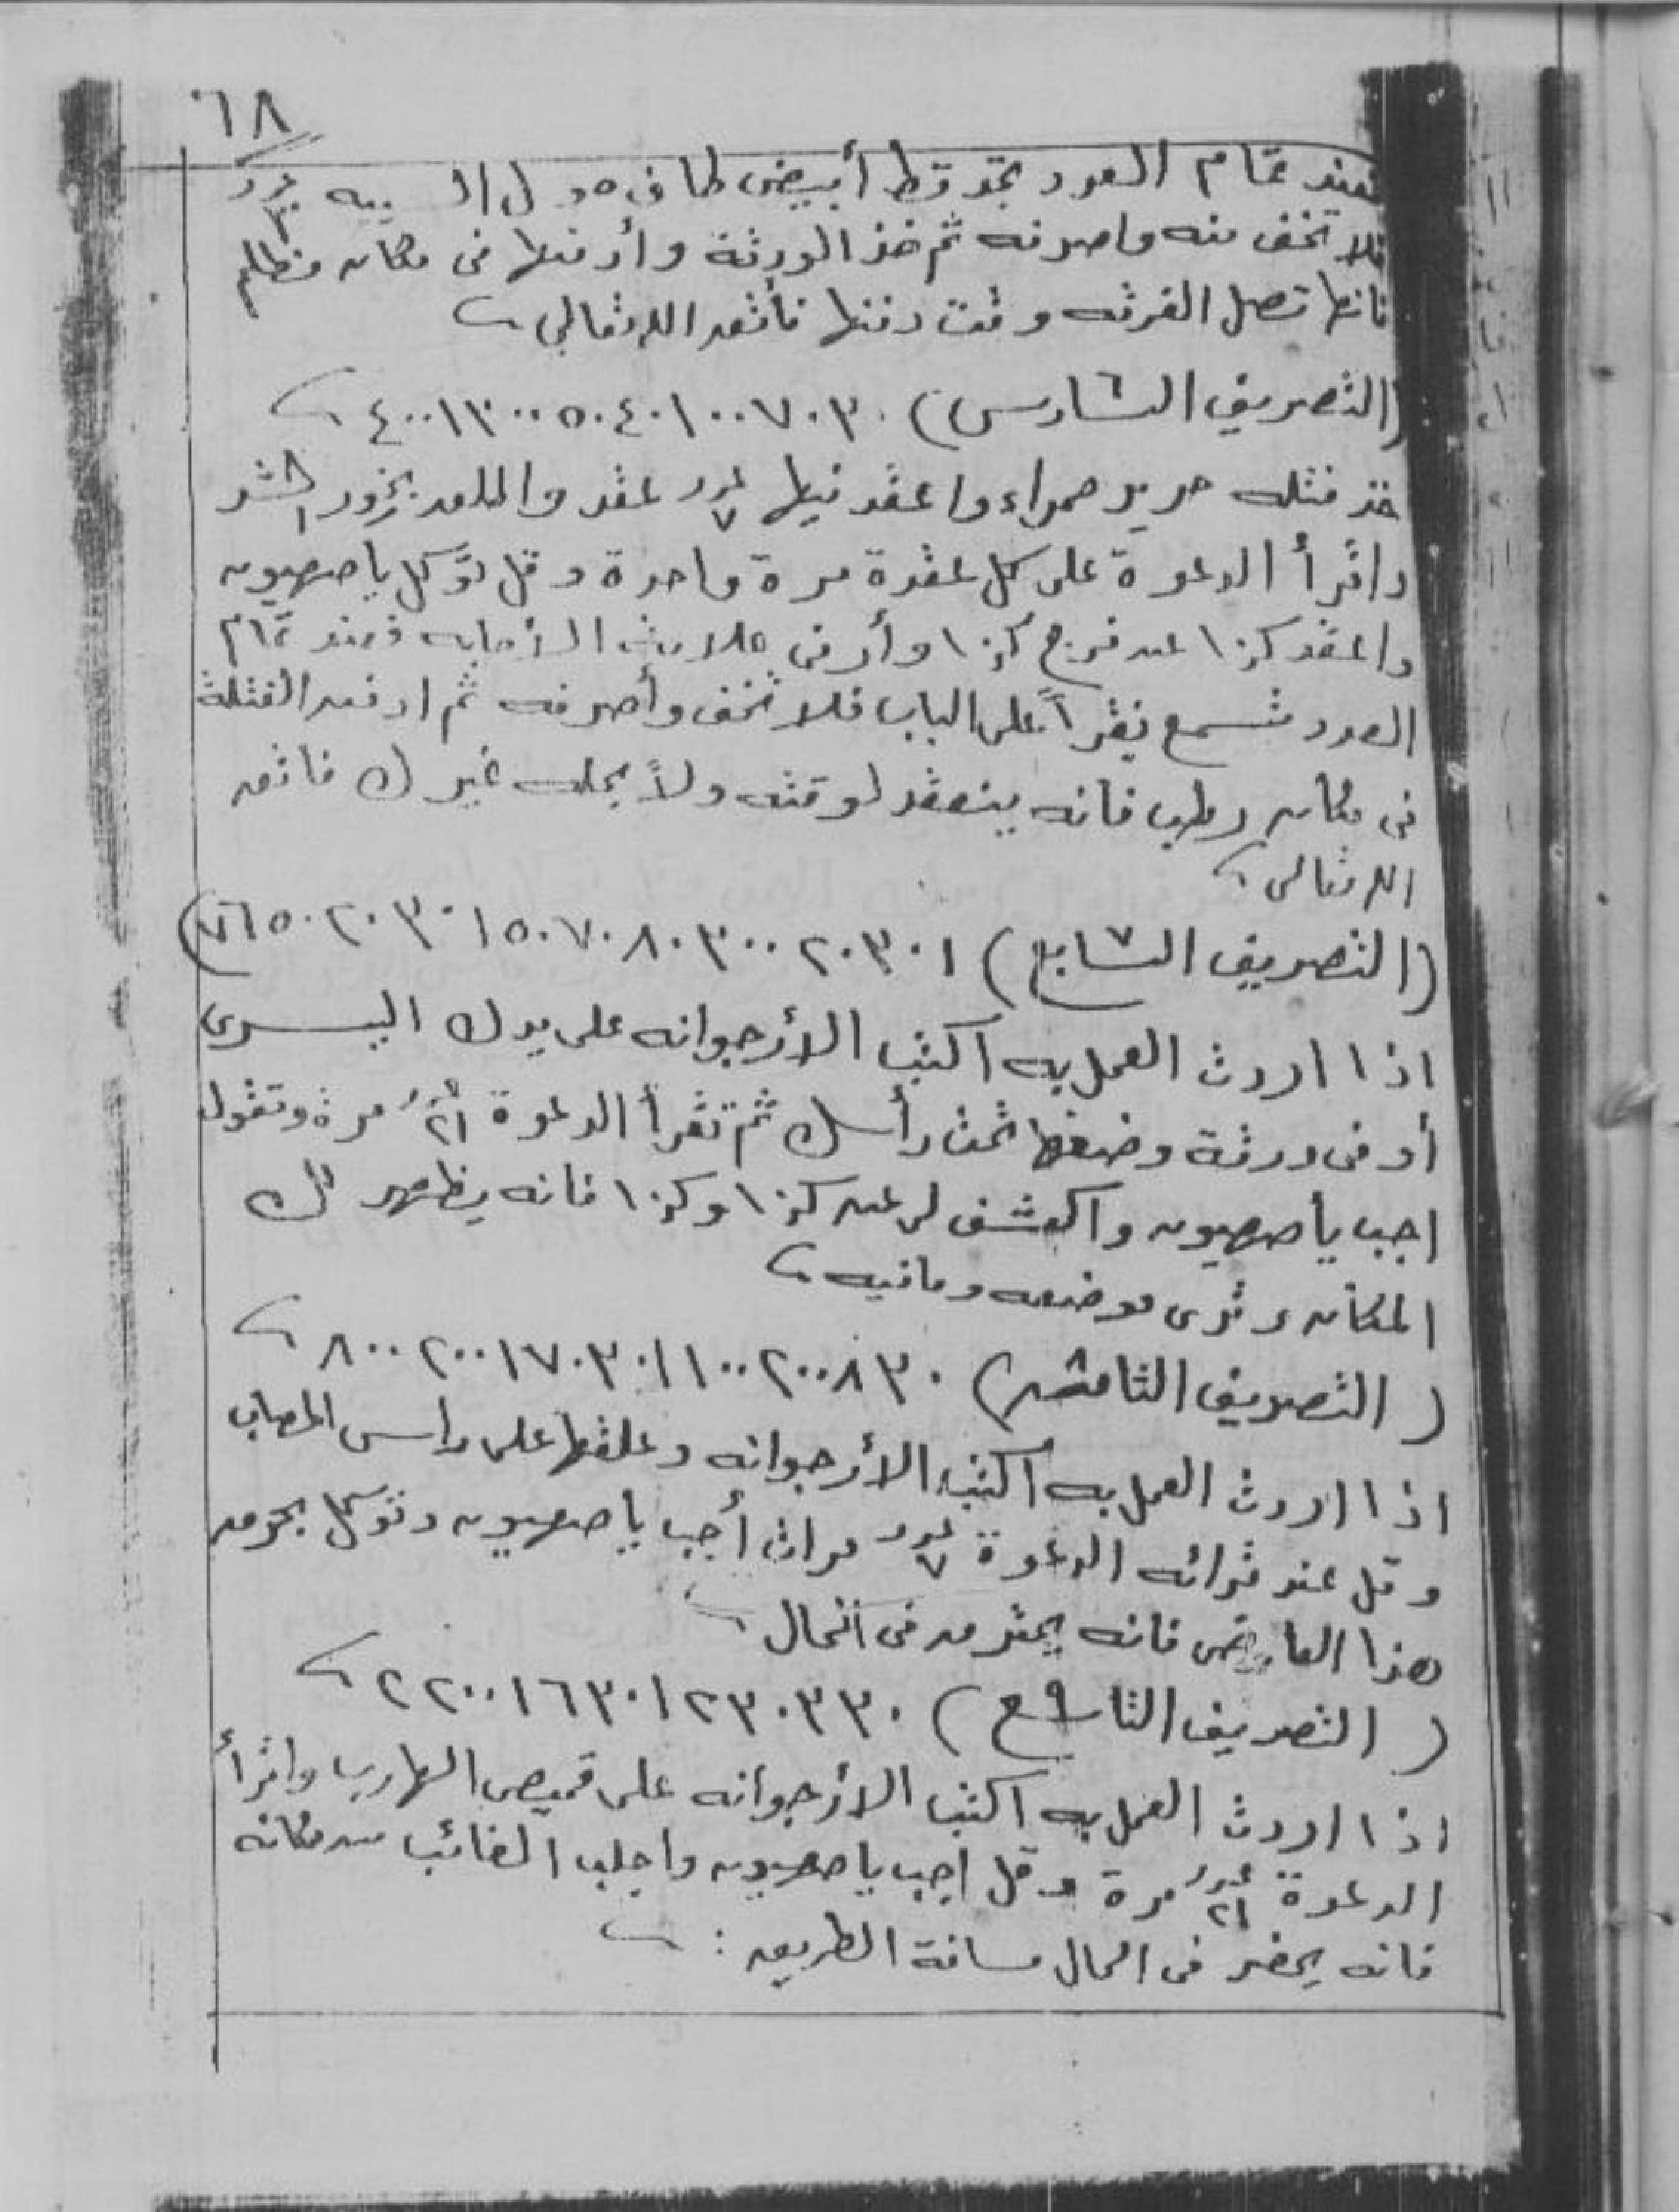 ٦٨
فعند تمام العدد تجد قط أبيض طاف حول البيه
فلا تخف منه واصرفه ثم خذ الورقة وأدفنها فى مكان مظلم
فانها تصل الفرقه وقت دفنها فأتق الله تعالى
(التصريف السادس) ٤٠٠١٣٠٠٥٠٤٠١٠٠٧٠٣٠
خذ فتله حرير حمراء واعقد فيها عدد ٧ عقد واطلق بخور الشر
واقرأ الدعوة على كل عقدة مرة واحدة وقل توكل يا صهيون
واعقد كذا عن فرج كذا وأرنى علامة الأجابه فعند تمام
العدد تسمع نقرا على الباب فلا تخف وأصرفه ثم ادفن الفتلة
فى مكان رطب فانه ينعقد لوقته ولا يحله غيرك فاتق
الله تعالى
(التصريف السابع) ٧٦٥٠٢٠٣٠١٥٠٧٠٨٠٣٠٠٢٠٣٠١
اذا اردت العمل به اكتب الأرجوانه على يدك اليسرى
أو فى ورقة وضعها تحت رأسك ثم تقرأ الدعوة عدد ٢١ مرة وتقول
اجب يا صهيون واكشف لى عن كذا وكذا فانه يظهر لك
المكان وترى موضعه ومافيه
(التصريف الثامن ٨) ٨٠٠٢٠٠١٧٠٣٠١١٠٠٢٠٠٨٣٠
اذا اردت العمل به اكتب الأرجوانه وعلقها على راس المصاب
وقل عند قرائه الدعوة عدد ٧ مرات أجب يا صهيون وتوكل بحرق
هذا العارض فانه يحترق فى الحال
(التصريف التاسع ٩) ٢٢٠٠١٦٣٠١٢٣٠٣٣٠
اذا اردت العمل به اكتب الارجوانه على قميص الهارب واقرأ
الدعوة عدد ٢١ مرة وقل اجب يا صهيون واجلب الغائب من مكانه
فانه يحضر فى الحال مسافة الطريق :